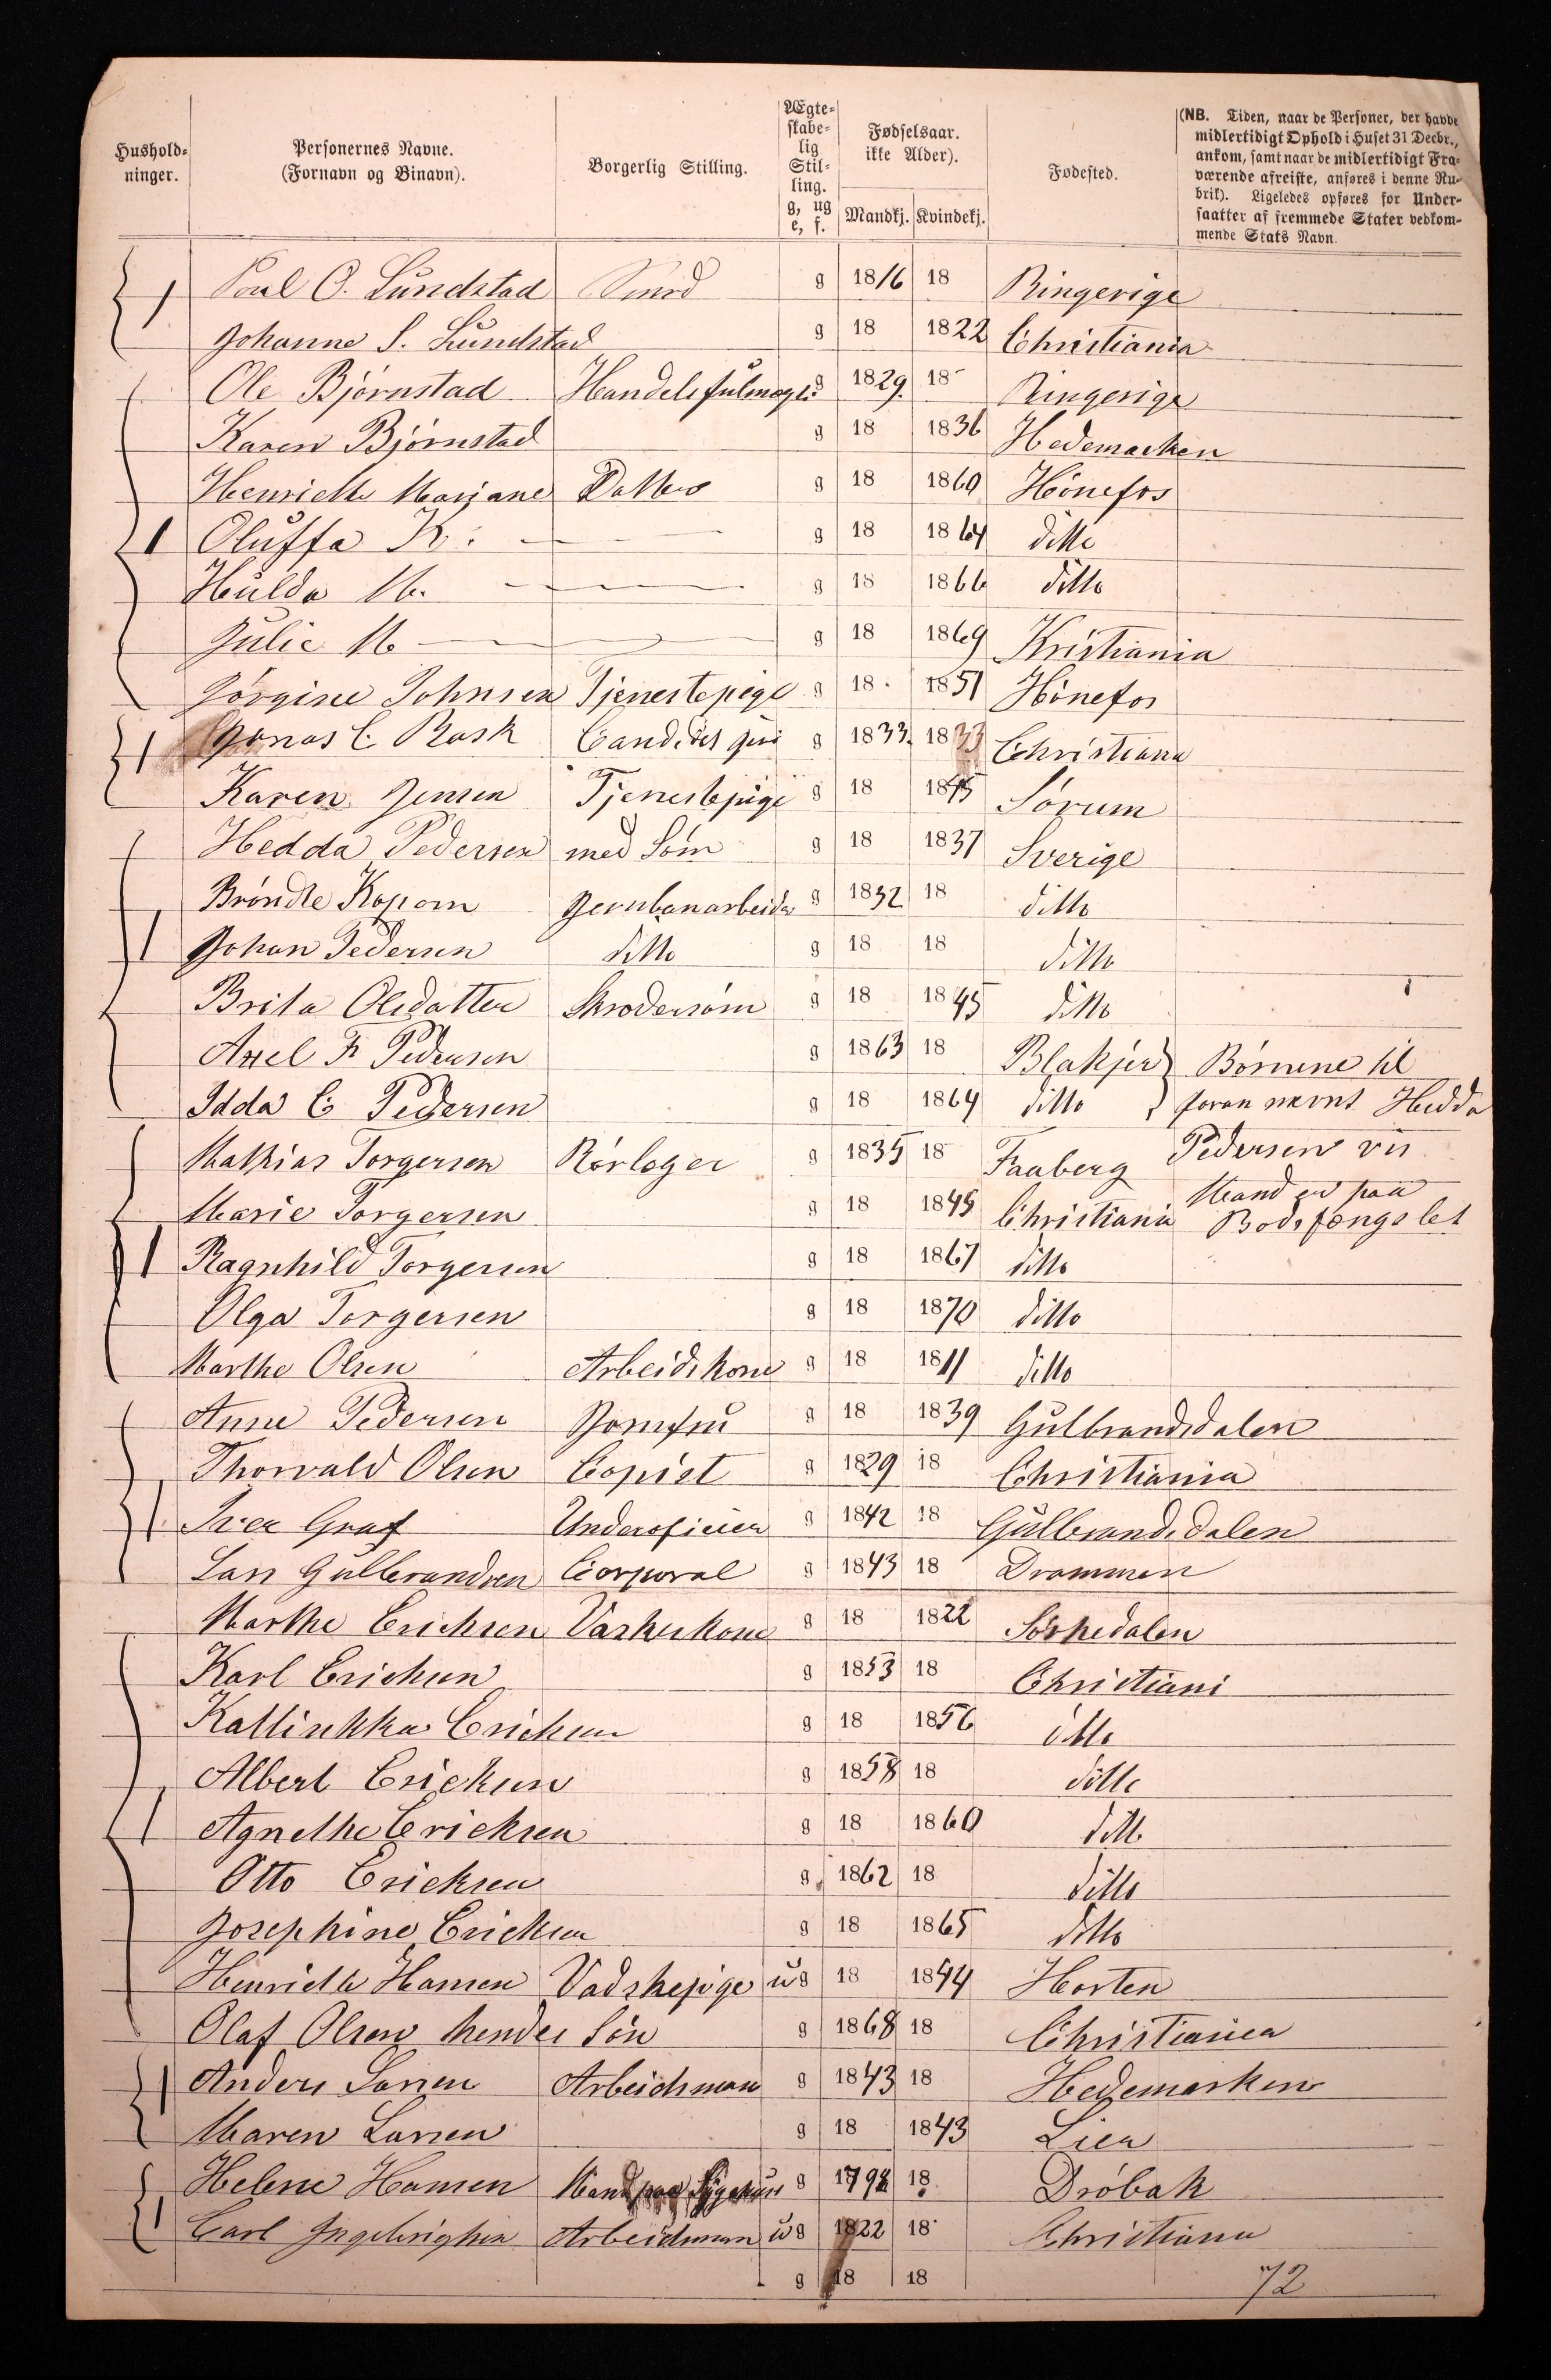 Hushold-
ninger.
Personernes Navne.
(Fornavn og Binavn).
Borgerlig Stilling.
Ægte-
skabe-
lig
Stil-
ling.
g, ug
e, f.
Fødselsaar.
ikke Alder).
Mandkj. Kvindekj.
Fødested.
(NB. Tiden, naar de Personer, der havde
midlertidigt Ophold i Huset 31 Decbr.,
ankom, samt naar de midlertidigt Fra-
værende afreiste, anføres i denne Ru-
brik). Ligeledes opføres for Under-
saatter af fremmede Stater vedkom-
mende Stats Navn.
1 Poul O. Lundstad Smed g 1816 18 Ringerige
Johanne S. Lundstad g 18 1822 Christiania
Ole Bjørnstad Handelsfulmægti g 1829. 18 Ringerige
Karen Bjørnstad g 18 1836 Hedemarken
Henriette Marjane Datter g 18 1860 Hønefos
1 Oluffa K. g 18 1864 ditto
Hulda M. g 18 1866 ditto
Julie M g 18 1869 Kristiania
Jørgine Johnsen Tjenestepige g 18 1851 Hønefos
1 Jonas C. Rask Candidat juri g 1833. 1833 Christiana
Karen Jensen Tjenestepige g 18 1845 Sørum
Hedda Pedersen med Søm g 18 1837 Sverige
Brøndle Kopom Jernbanarbeider g 1832 18 ditto
1 Johan Pedersen ditto g 18 18 ditto
Brita Olsdatter Skrodersøm g 18 1845 ditto
Axel F. Pedersen g 1863 18 Blakjer } Børnene til
Idda C Pedersen g 18 1864 ditto } foran nævnt Hedda
Mathias Torgersen Rørleger g 1835 18 Faaberg Pedersen vis
Marie Torgersen g 18 1845 Christiania Mand er paa
Bodsfængslet
1 Ragnhild Torgersen g 18 1867 ditto
Olga Torgersen g 18 1870 ditto
Marthe Olsen Arbeidskone g 18 1811 ditto
Anne Pedersen Jomfru g 18 1839 Gulbrandsdalen
Thorvald Olsen Copist g 1829 18 Christiania
1 Iver Graf Underoficier g 1842 18 Gulbrandsdalen
Lars Gulbrandsen Corporal g 1843 18 Drammen
Marthe Erichsen Vaskerkone g 18 1822 Sørkedalen
Karl Erichsen g 1853 18 Christiani
Kattinkka Erichsen g 18 1856 ditto
Albert Ericksen g 1858 18 ditto
1 Agnethe Ericksen g 18 1860 ditto
Otto Ericksen g 1862 18 ditto
Josephine Ericksen g 18 1865 ditto
Henriette Hansen Vadskepige ug 18 1844 Horten
Olaf Olsen hendes Søn g 1868 18 Christiania
1 Anders Larsen Arbeidsman g 1843 18 Hedemarken
Maren Larsen g 18 1843 Lier
Helene Hansen Mand paa Sygehus g 1798 18 Drøbak
1 Carl Ingebrigtsen Arbeidsman ug 1822 18 Christiana
g 18 18 72